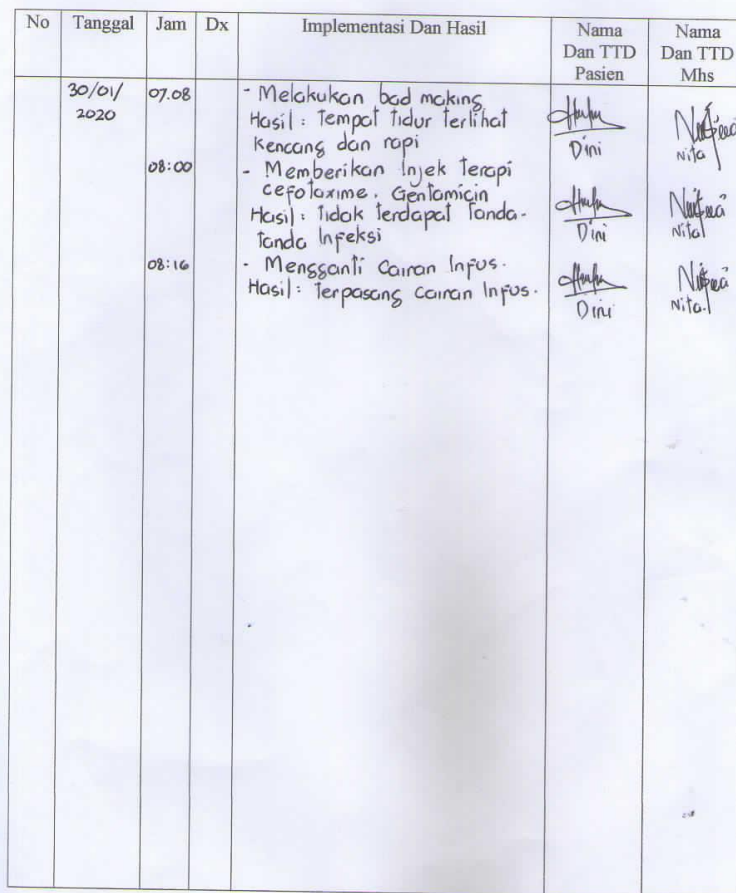 No Tanggal Jam Dx Implementasi Dan Hasil Nama Dan TTD Pasien Nama Dan TTD Mhs
30/01/2020 07.08 - Melakukan bad making
Hasil : Tempat tidur terlihat
kencang dan rapi
Dini Nita
08:00 - Memberikan Injek terapi
cefotaxime. Gentamicin
Hasil : tidak terdapat tanda-
tanda Infeksi
Dini Nita
08:16 - Mengganti Cairan Infus.
Hasil : Terpasang cairan Infus.
Dini Nita.